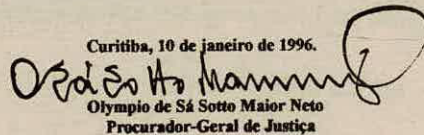 Curitiba, 10 de janeiro de 1996.
Olympio de Sá Sotto Maior Neto
Procurador-Geral de Justiça